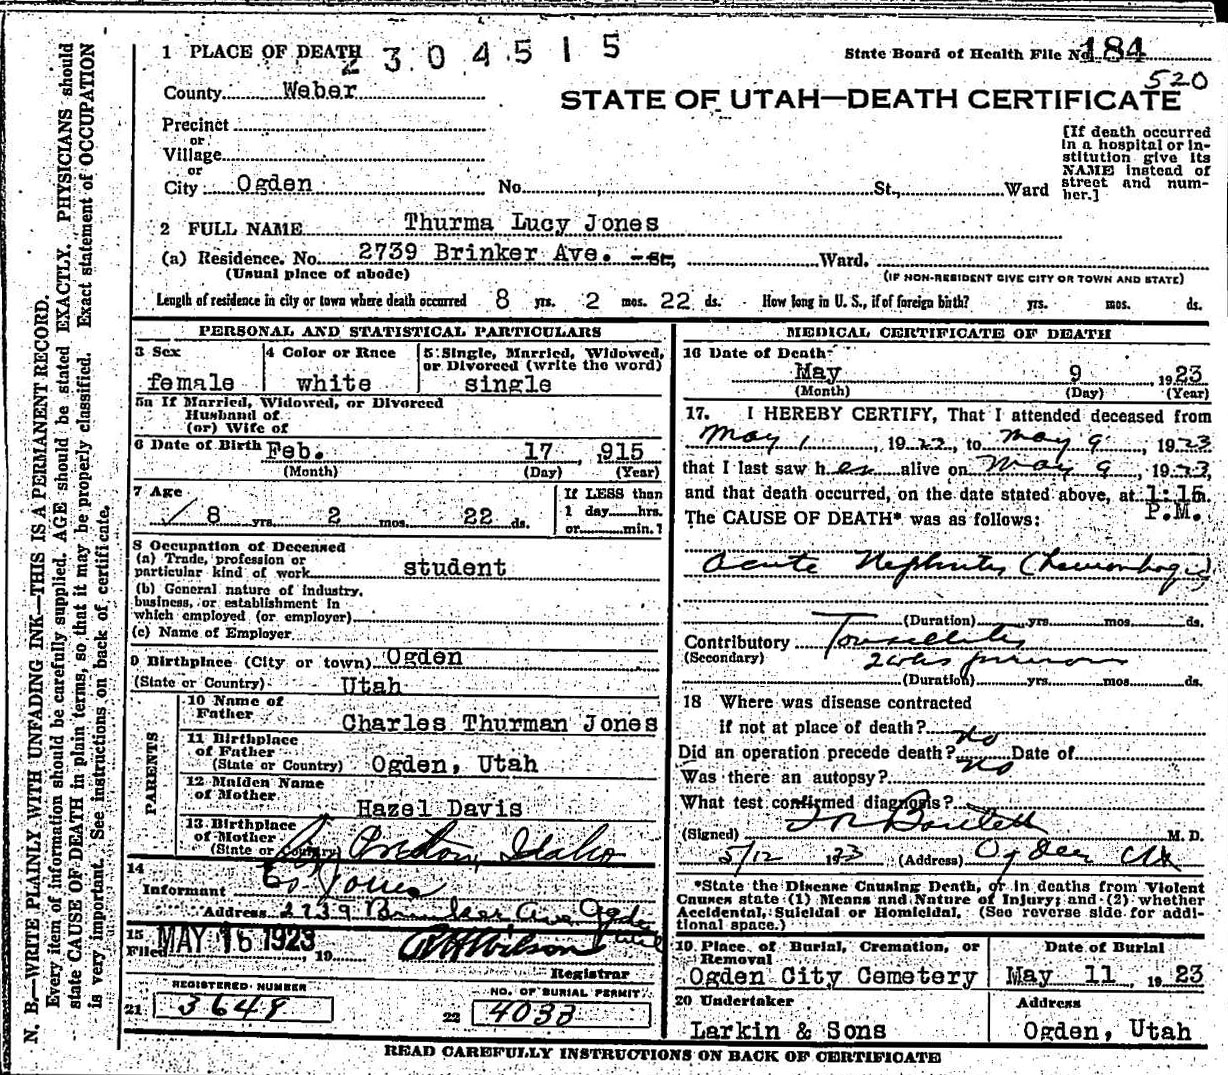 1 PLACE OF DEATH 2 3 0 4 5 1 5
State Board of Health File No. 184
520
County Weber
STATE OF UTAH—DEATH CERTIFICATE
Precinct
or
Village
or
City Ogden No. St., Ward
[If death occurred in a hospital or institution give its NAME instead of street and number.]
2 FULL NAME Thurma Lucy Jones
(a) Residence. No. 2739 Brinker Ave. St., Ward.
(Usual place of abode) (IF NON-RESIDENT GIVE CITY OR TOWN AND STATE)
Length of residence in city or town where death occurred 8 yrs. 2 mos. 22 ds. How long in U. S., if of foreign birth? yrs. mos. ds.
PERSONAL AND STATISTICAL PARTICULARS
3 Sex
female
4 Color or Race
white
5 Single, Married, Widowed, or Divorced (write the word)
single
5a If Married, Widowed, or Divorced
Husband of
(or) Wife of
6 Date of Birth Feb. 17 ,915
(Month) (Day) (Year)
7 Age
8 yrs. 2 mos. 22 ds.
If LESS than
1 day hrs.
or min.?
8 Occupation of Deceased
(a) Trade, profession or
particular kind of work student
(b) General nature of industry,
business, or establishment in
which employed (or employer)
(c) Name of Employer
9 Birthplace (City or town) Ogden
(State or Country) Utah
PARENTS
10 Name of
Father Charles Thurman Jones
11 Birthplace
of Father
(State or Country) Ogden, Utah
12 Maiden Name
of Mother Hazel Davis
13 Birthplace
of Mother
(State or Country) Preston, Idaho
14
Informant Jones
Address 2739 Brinker Ave Ogden
Utah
15
Filed MAY 16 1923, 19
Wilson
Registrar
REGISTERED NUMBER
21 3648
NO. OF BURIAL PERMIT
22 4033
MEDICAL CERTIFICATE OF DEATH
16 Date of Death
May 9, 1923
(Month) (Day) (Year)
17. I HEREBY CERTIFY, That I attended deceased from
May 1, 1923, to May 9, 1923
that I last saw her alive on May 9, 1923,
and that death occurred, on the date stated above, at 1:15 m.
P.M.
The CAUSE OF DEATH* was as follows:
Acute Nephritis (hemorrhagic)
(Duration) yrs. mos. ds.
Contributory Tonsillitis
(Secondary) 2 wks previous
(Duration) yrs. mos. ds.
18 Where was disease contracted
if not at place of death?
Did an operation precede death? no Date of
Was there an autopsy? no
What test confirmed diagnosis?
(Signed) M. D.
5/12 1923 (Address) Ogden Ut
*State the Disease Causing Death, or in deaths from Violent
Causes state (1) Means and Nature of Injury; and (2) whether
Accidental, Suicidal or Homicidal. (See reverse side for addi-
tional space.)
19 Place of Burial, Cremation, or
Removal
Ogden City Cemetery
Date of Burial
May 11 1923
20 Undertaker
Larkin & Sons
Address
Ogden, Utah
READ CAREFULLY INSTRUCTIONS ON BACK OF CERTIFICATE
N. B.—WRITE PLAINLY WITH UNFADING INK—THIS IS A PERMANENT RECORD.
Every item of information should be carefully supplied. AGE should be stated EXACTLY. PHYSICIANS should
state CAUSE OF DEATH in plain terms, so that it may be properly classified. Exact statement of OCCUPATION
is very important. See instructions on back of certificate.